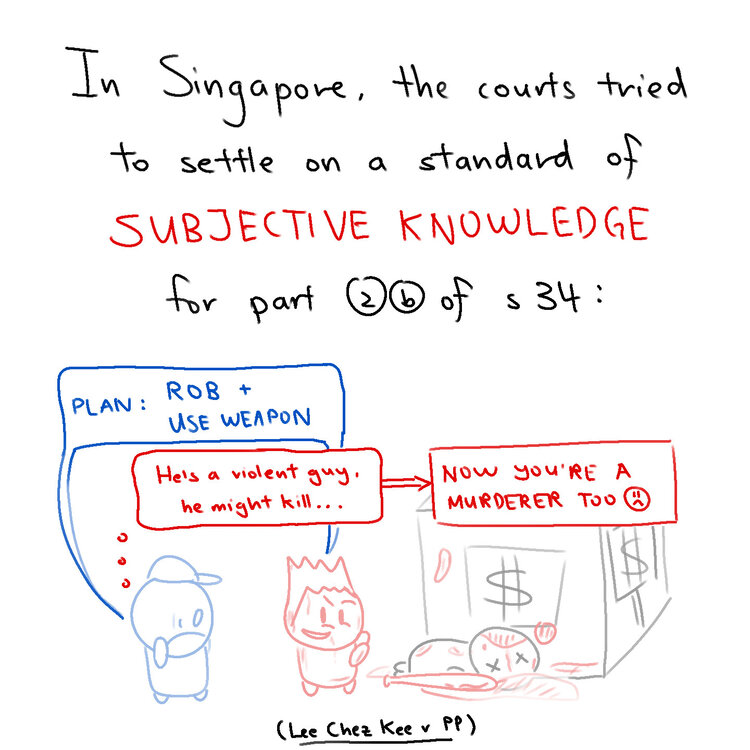 In Singapore, the courts tried
to settle on a standard of
SUBJECTIVE KNOWLEDGE
for part ② ⓑ of s 34:
PLAN: ROB +
USE WEAPON
He's a violent guy,
he might kill...
NOW YOU'RE A
MURDERER TOO ☹
$
$
(Lee Chez Kee v PP)